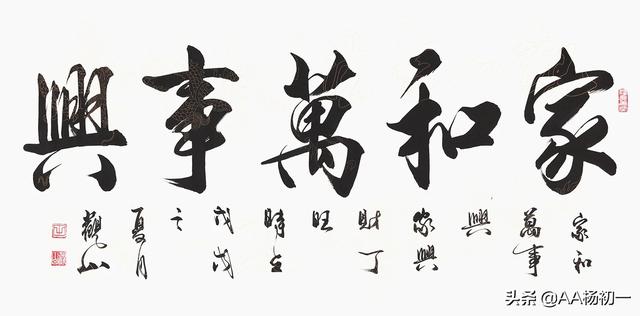 家和萬事興
家和
萬事
興
家興
財丁
旺
時在
戊戌
之
夏月
觀山
头条 @AA杨初一